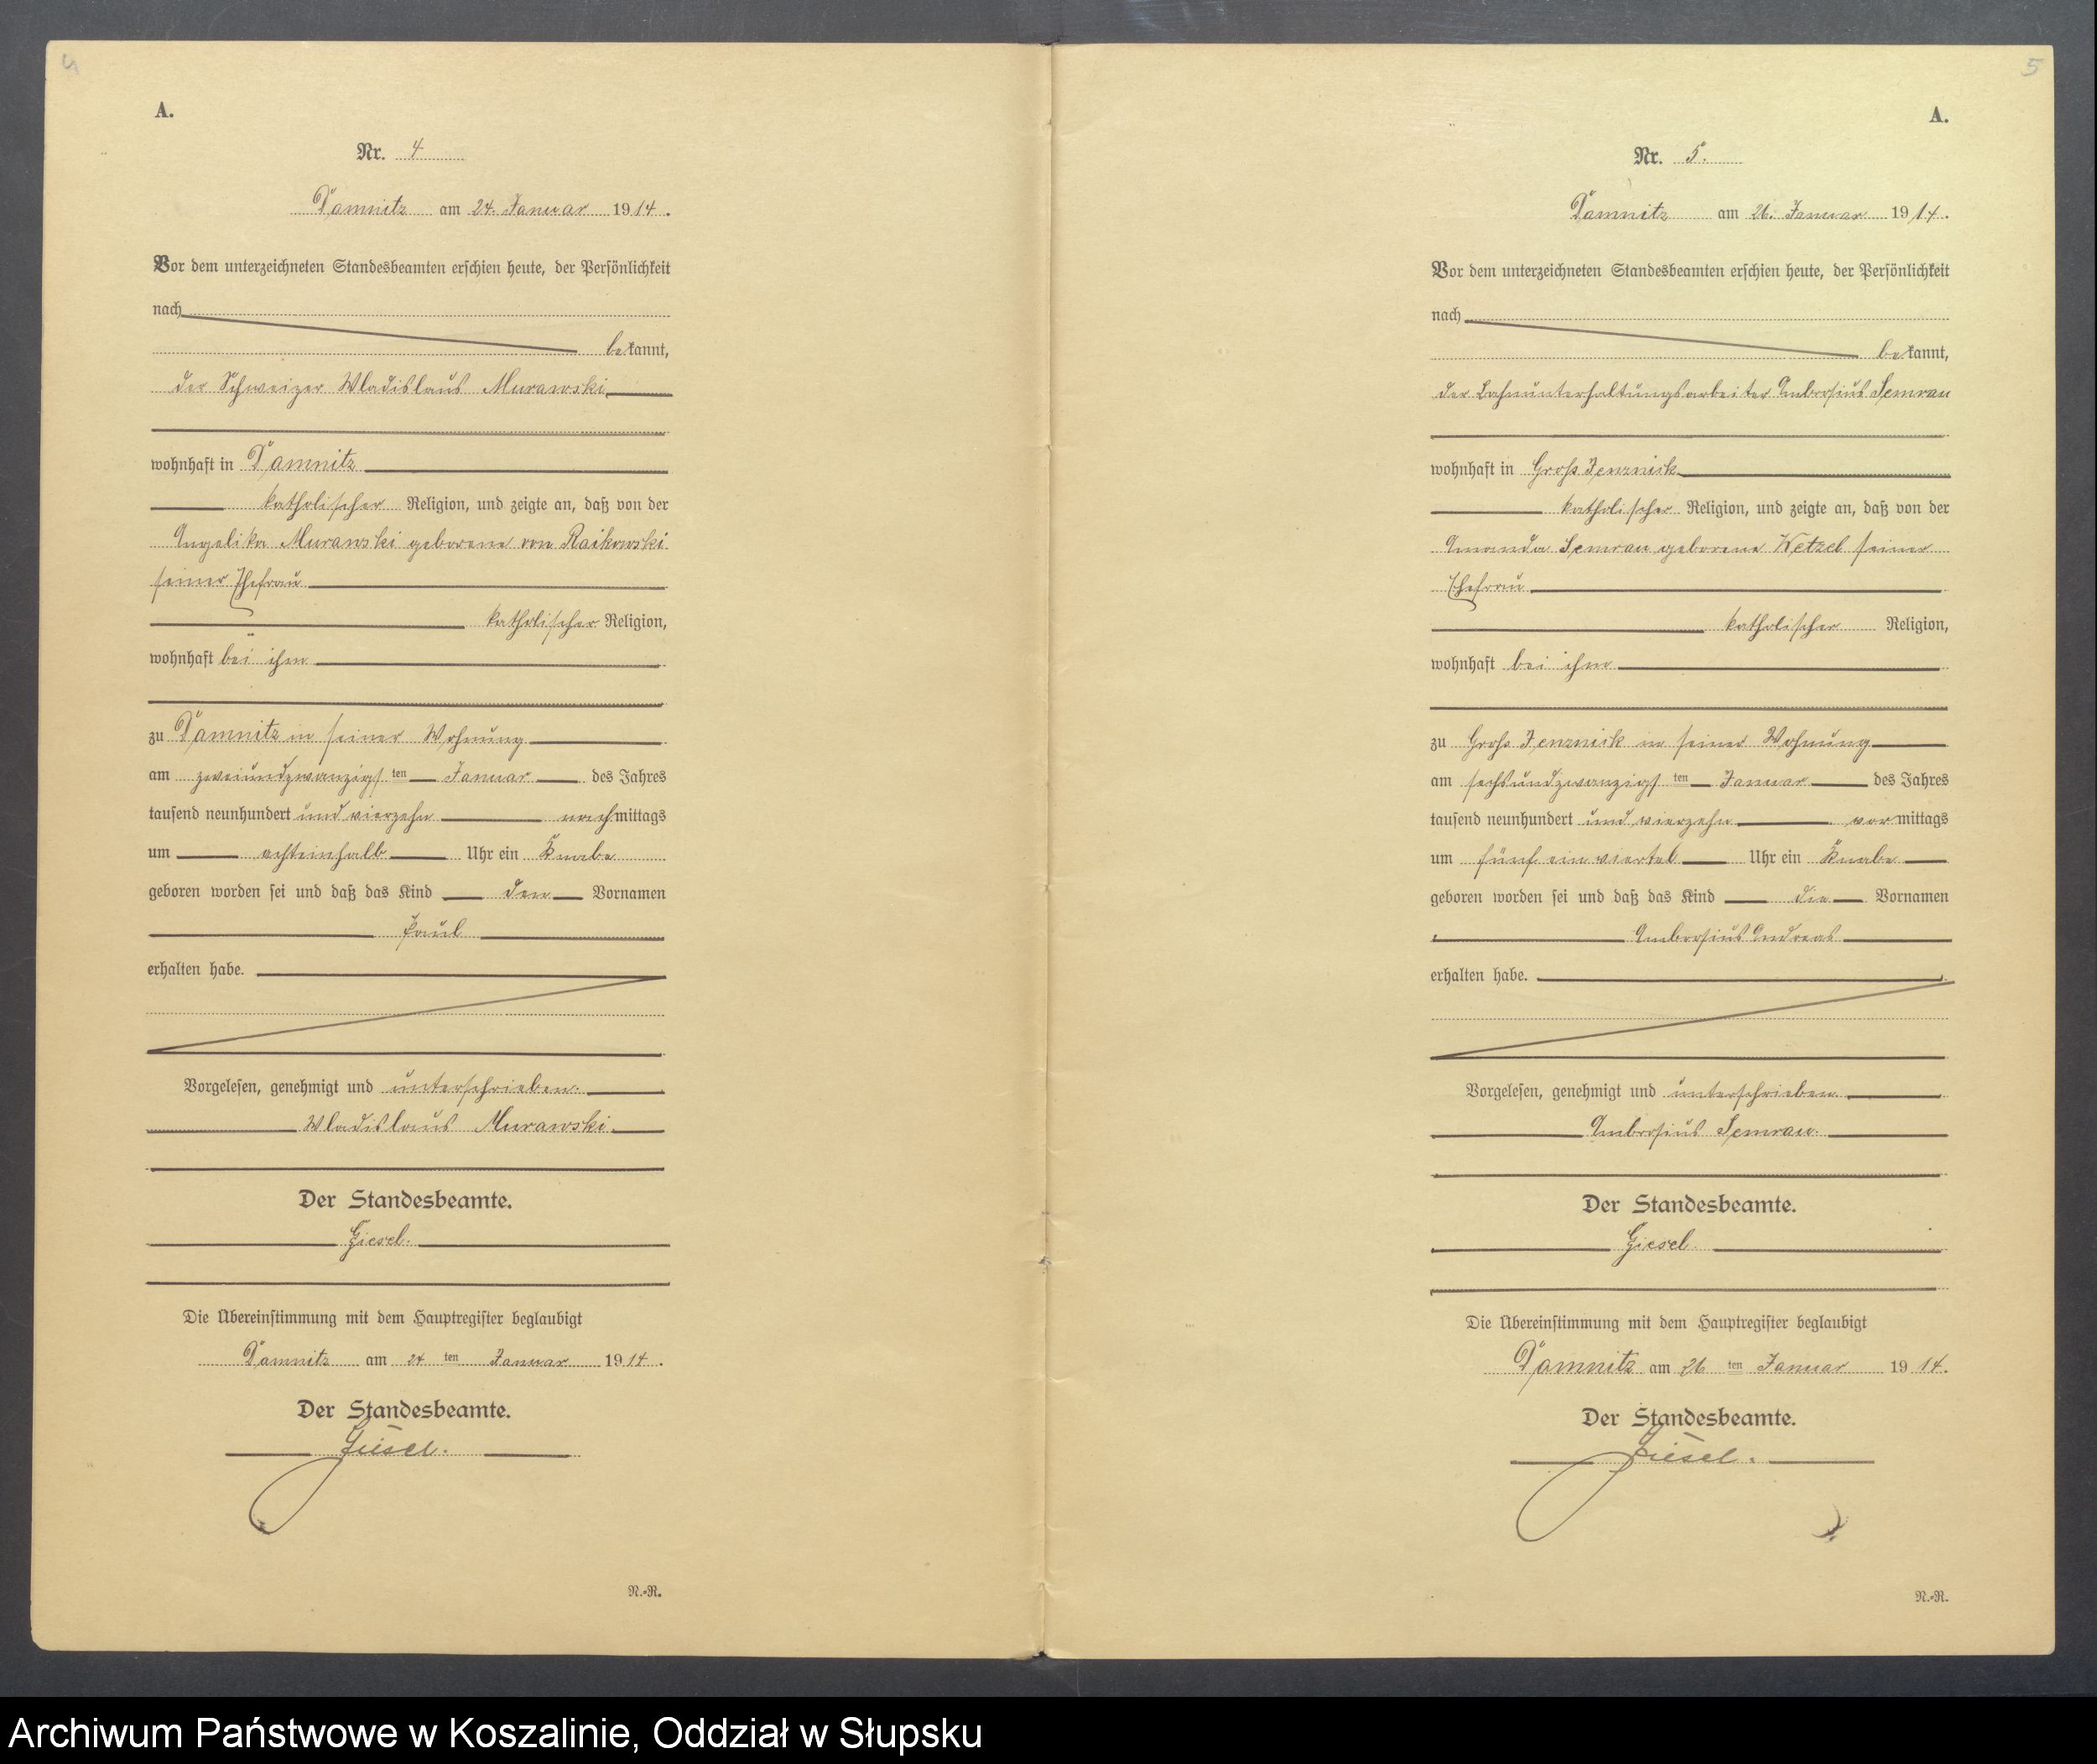 4
A.
Nr. 4
Damnitz am 24. Januar 1914.
Vor dem unterzeichneten Standesbeamten erschien heute, der Persönlichkeit
nach
bekannt,
der Schweizer Wladislaus Murawski
wohnhaft in Damnitz
katholischer Religion, und zeigte an, daß von der
Angelika Murawski geborene von Raikowski
seiner Ehefrau
katholischer Religion,
wohnhaft bei ihm
zu Damnitz in seiner Wohnung
am zweiundzwanzigsten Januar des Jahres
tausend neunhundert und vierzehn nachmittags
um achteinhalb Uhr ein Knabe
geboren worden sei und daß das Kind den Vornamen
Paul
erhalten habe.
Vorgelesen, genehmigt und unterschrieben.
Wladislaus Murawski.
Der Standesbeamte.
Giesel.
Die Übereinstimmung mit dem Hauptregister beglaubigt
Damnitz am 24 ten Januar 1914.
Der Standesbeamte.
Giesel.
N.-R.
5
A.
Nr. 5.
Damnitz am 26. Januar 1914.
Vor dem unterzeichneten Standesbeamten erschien heute, der Persönlichkeit
nach
bekannt,
der Bahnunterhaltungsarbeiter Ambrosius Semrau
wohnhaft in Groß Jenznick
katholischer Religion, und zeigte an, daß von der
Amanda Semrau geborene Wetzel seiner
Ehefrau
katholischer Religion,
wohnhaft bei ihm
zu Groß Jenznick in seiner Wohnung
am sechsundzwanzigsten Januar des Jahres
tausend neunhundert und vierzehn vormittags
um fünf ein viertel Uhr ein Knabe
geboren worden sei und daß das Kind die Vornamen
Ambrosius Andreas
erhalten habe.
Vorgelesen, genehmigt und unterschrieben
Ambrosius Semrau.
Der Standesbeamte.
Giesel.
Die Übereinstimmung mit dem Hauptregister beglaubigt
Damnitz am 26 ten Januar 1914.
Der Standesbeamte.
Giesel.
N.-R.
Archiwum Państwowe w Koszalinie, Oddział w Słupsku